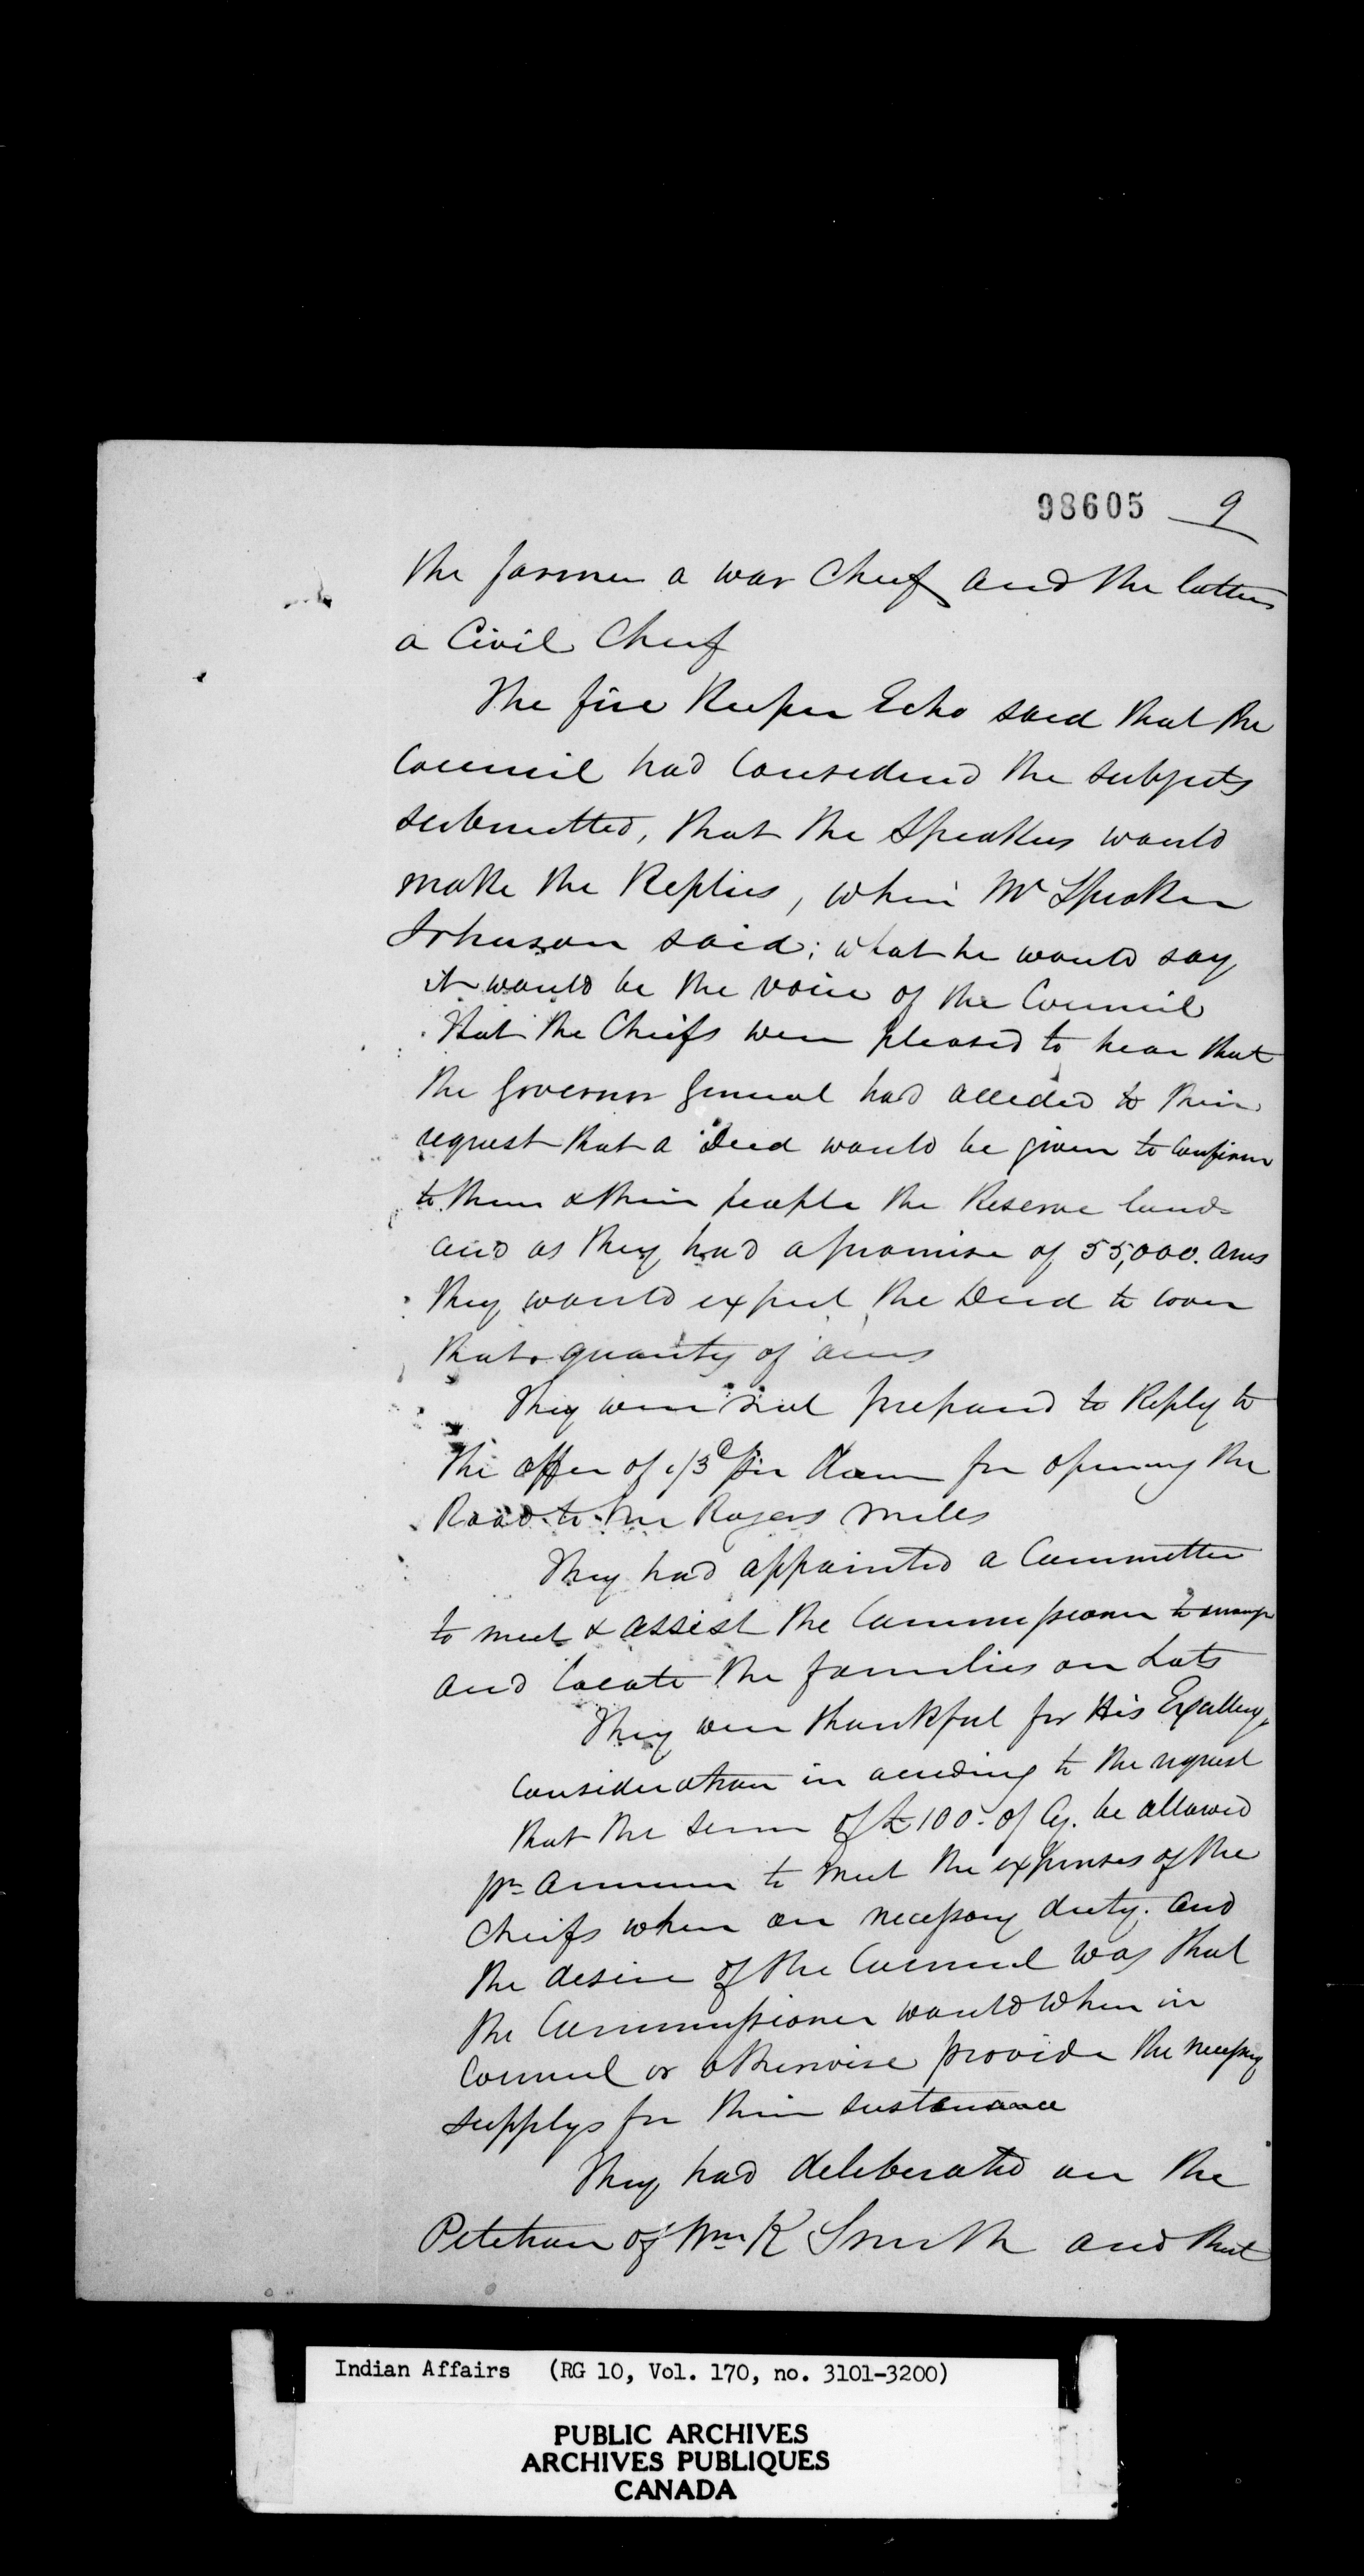 98605 9
the former a war Cheif and the latter
a Civil Cheif
The fire Keeper Echo said that the
Council had Considered the subjects
submitted, that the Speakers would
make the Replies, when Mr Speaker
Johnson said; what he would say
it would be the voice of the Council
That the Cheifs were pleased to hear that
the Governor General had acceded to their
request that a Deed would be given to Confirm
to them & their people the Reserve lands
and as they had a promise of 55,000. acres
they would expect the Deed to cover
that quantity of acres
They were not prepared to Reply to
the offer of 1/3d per for opening the
Road to Rogers Mills
They had appointed a Committee
to meet & assist the Commissioner to arrange
and locate the families on Lots
They were thankful for His Excellency
Consideration in acceding to the request
that the sum of £100. of Cy. be allowed
pr annum to meet the expenses of the
Cheifs when on necessary duty. and
the desire of the Council was that
the Commissioner would when in
Council or otherwise provide the necessary
supplys for their sustenance
They had deliberated on the
Petition of Wm K Smith and that
Indian Affairs (RG 10, Vol. 170, no. 3101-3200)
PUBLIC ARCHIVES
ARCHIVES PUBLIQUES
CANADA